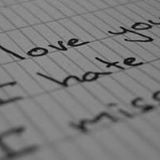 love you
I hate
I miss